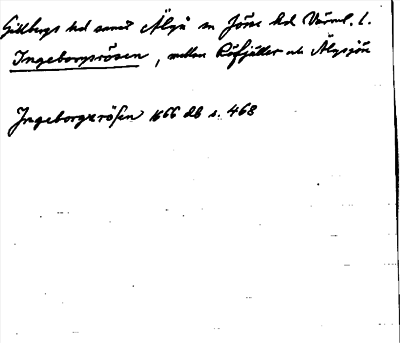 Gillbergs hd samt Älgå sn Jösse hd Värml. l.
Ingeborgsrösen, mellan Rösfjället och Älgsjön
Ingeborgzrösen 1666 db s. 468